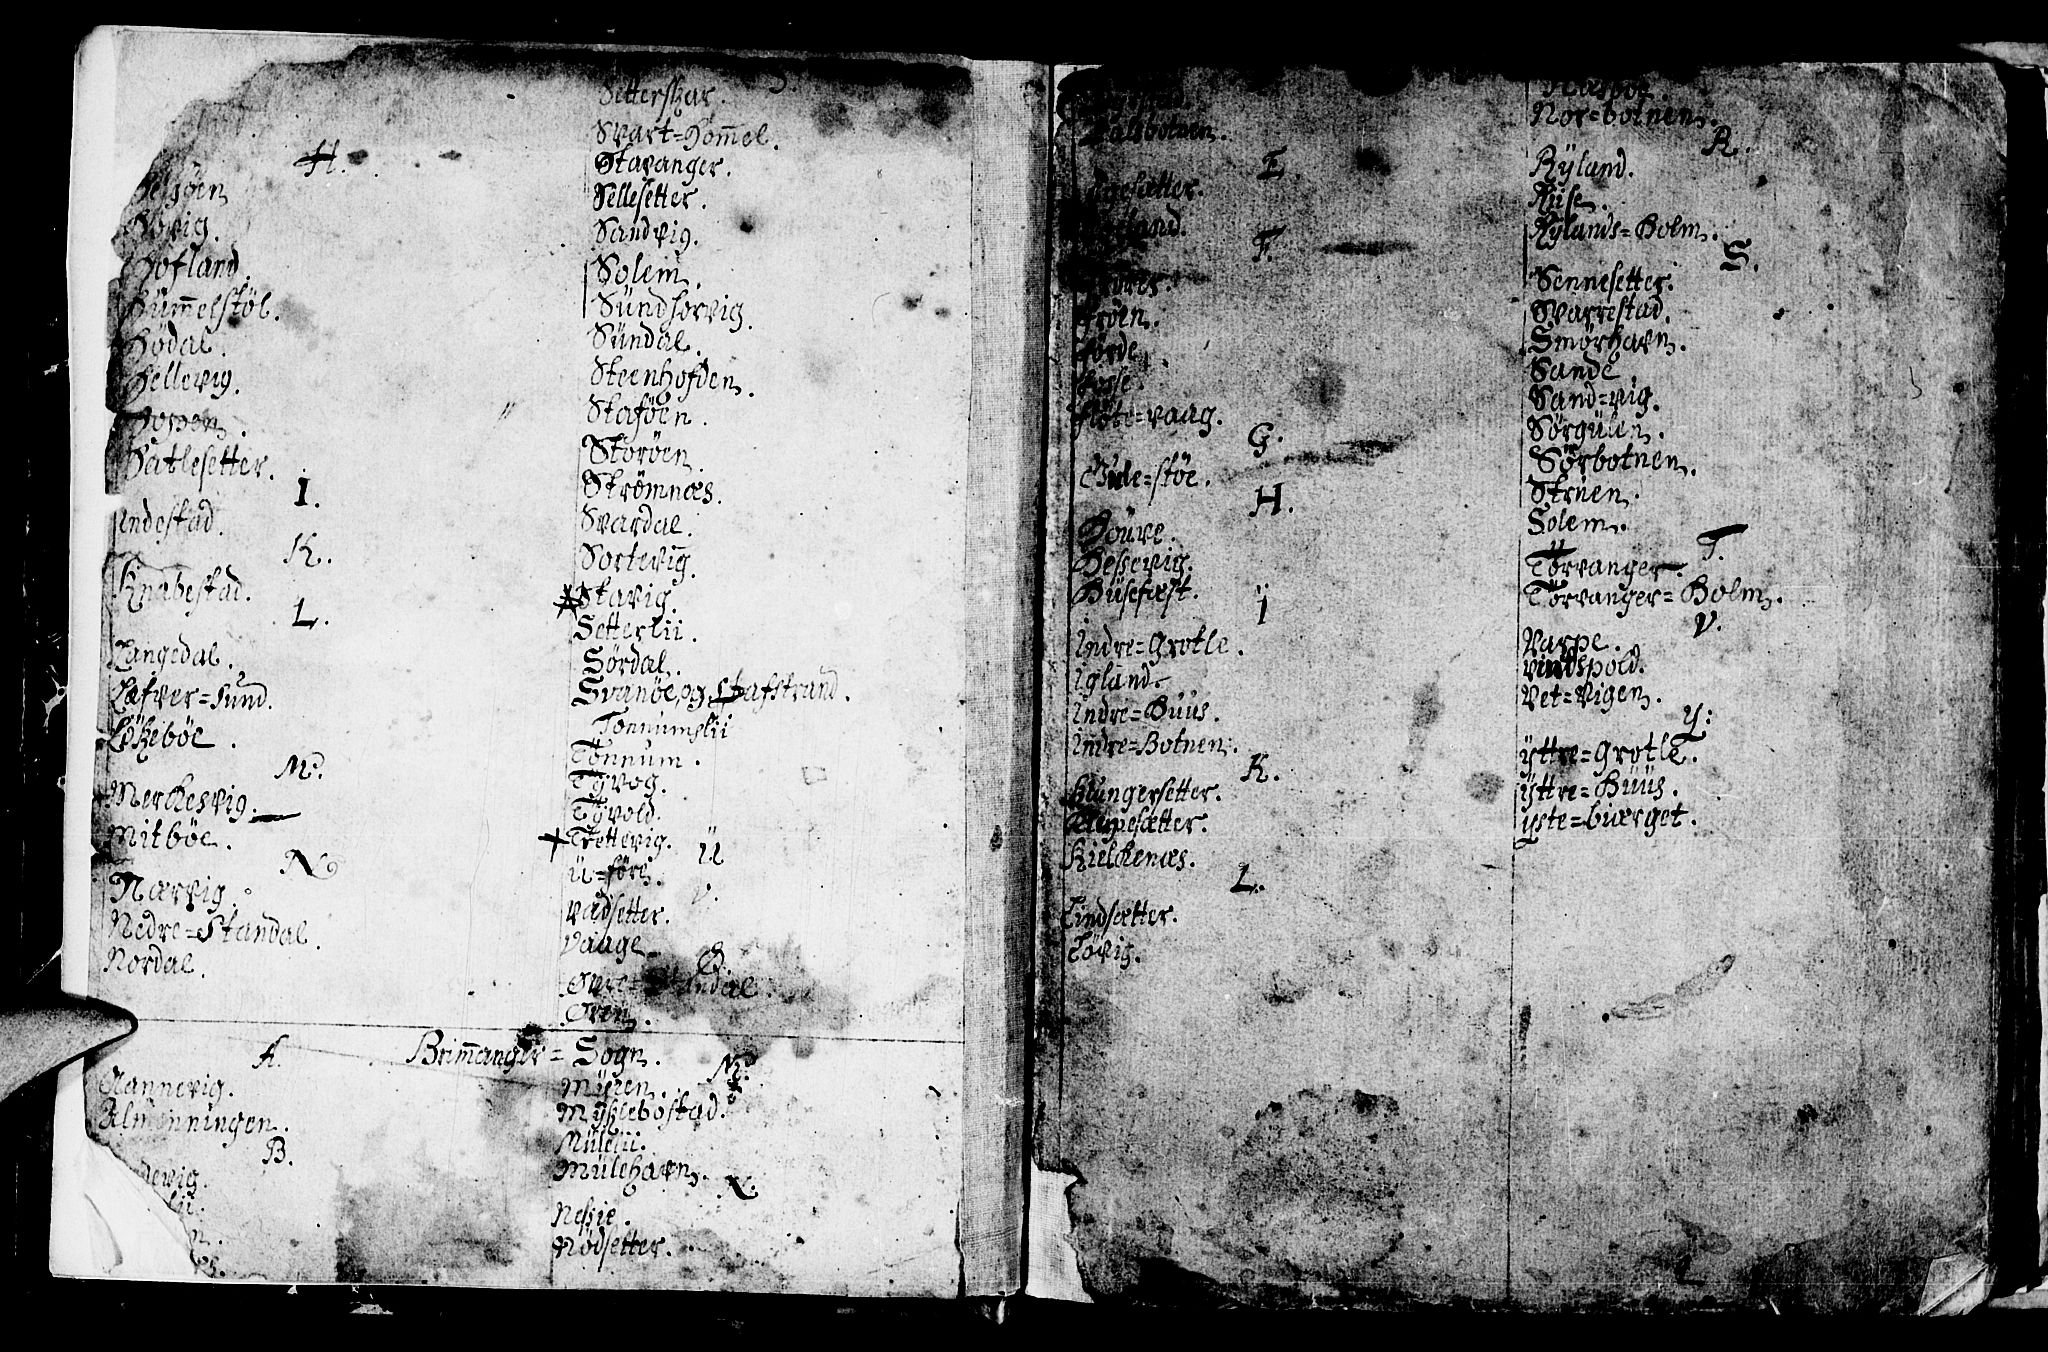 H.
Hofland.
Hummelstøl.
Hødal.
Hellevig.
Hatlesetter.
I.
Indestad.
K.
Knabestad.
L.
Langedal.
Lafver=sund.
Løkebøe.
M.
Merckesvig.
Mitbøe.
N
Nærvig.
Nedre=Standal.
Nordal.
S.
Setterskar.
Svart=Hom̄el.
Stavanger.
Sellesetter.
Sandvig.
Solem.
Sündhorvig.
Sündal.
Steenhofden.
Staføen.
Storøen.
Strømnæs.
Svardal.
Sortevig.
Stavig.
Setterlii.
Sørdal.
Svanøe, og Stafstrand.
Tonnumslii
Tønnum.
Tyvog.
Tyvold.
Tettevig.
Ü.
Ü=føre.
V.
Vadsetter.
Vaage
Ø.
Brim̄anger= Sogn.
A.
Aannevig.
Almenningen.
B.
M.
Myren.
Myklebostad.
Mülelii.
Mülehavn.
N.
Nessie.
Nødsetter.
E.
F.
Frøen.
Førde.
Fosse.
Fløte=vaag.
G.
Gule=støe.
H.
Houve.
Hessevig.
Husefæst.
I
Indre=Grotle.
Igland.
Indre=Huus.
Indre=Botnen.
K.
Klungersetter.
Klepesætter.
Kielckenæs.
L.
Lindsætter.
Løvig.
Nor=botnen.
R.
Ryland.
Rise.
Rylands=Holm.
S.
Sennesetter.
Svarrestad.
Smørhavn.
Sande
Sand=vig.
Sørgülen.
Sørbotnen.
Strüen.
Solem.
T.
Torvanger.
Torvanger=Holm.
V.
Varpe.
Vindspold.
Vet=vigen.
Y:
Yttre=Grotle.
Yttre=Hüüs.
Yste=bierget.